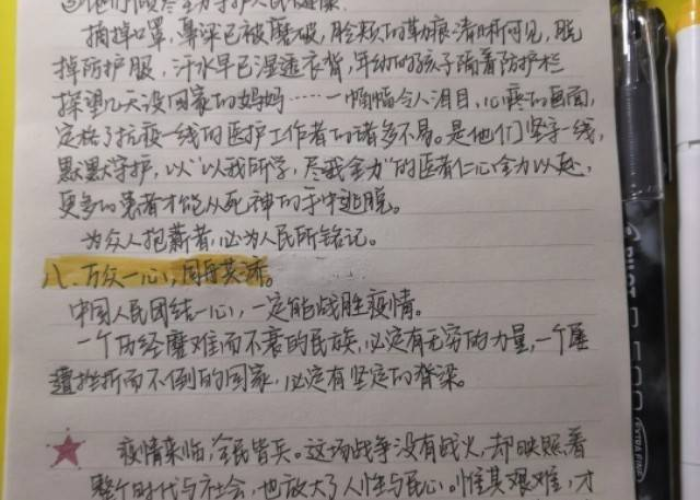 他们倾尽全力守护人民健康
摘掉口罩，鼻梁已被磨破，脸颊的勒痕清晰可见，脱
掉防护服，汗水早已湿透衣背，年幼的孩子隔着防护栏
探望几天没回家的妈妈……一幅幅令人泪目、心疼的画面，
定格了抗疫一线的医护工作者的诸多不易。是他们坚守一线，
默默守护，以"以我所学，尽我全力"的医者仁心全力以赴，
更多的患者才能从死神的手中逃脱。
为众人抱薪者，必为人民所铭记。
八、万众一心，同舟共济。
中国人民团结一心，一定能战胜疫情。
一个历经磨难而不衰的民族，必定有无穷的力量，一个屡
遭挫折而不倒的国家，必定有坚定的脊梁。
疫情来临，全民皆兵。这场战争没有战火，却映照着
整个时代与社会，也放大了人性与民心。惟其艰难，才
PILOT
EXTRA FINE